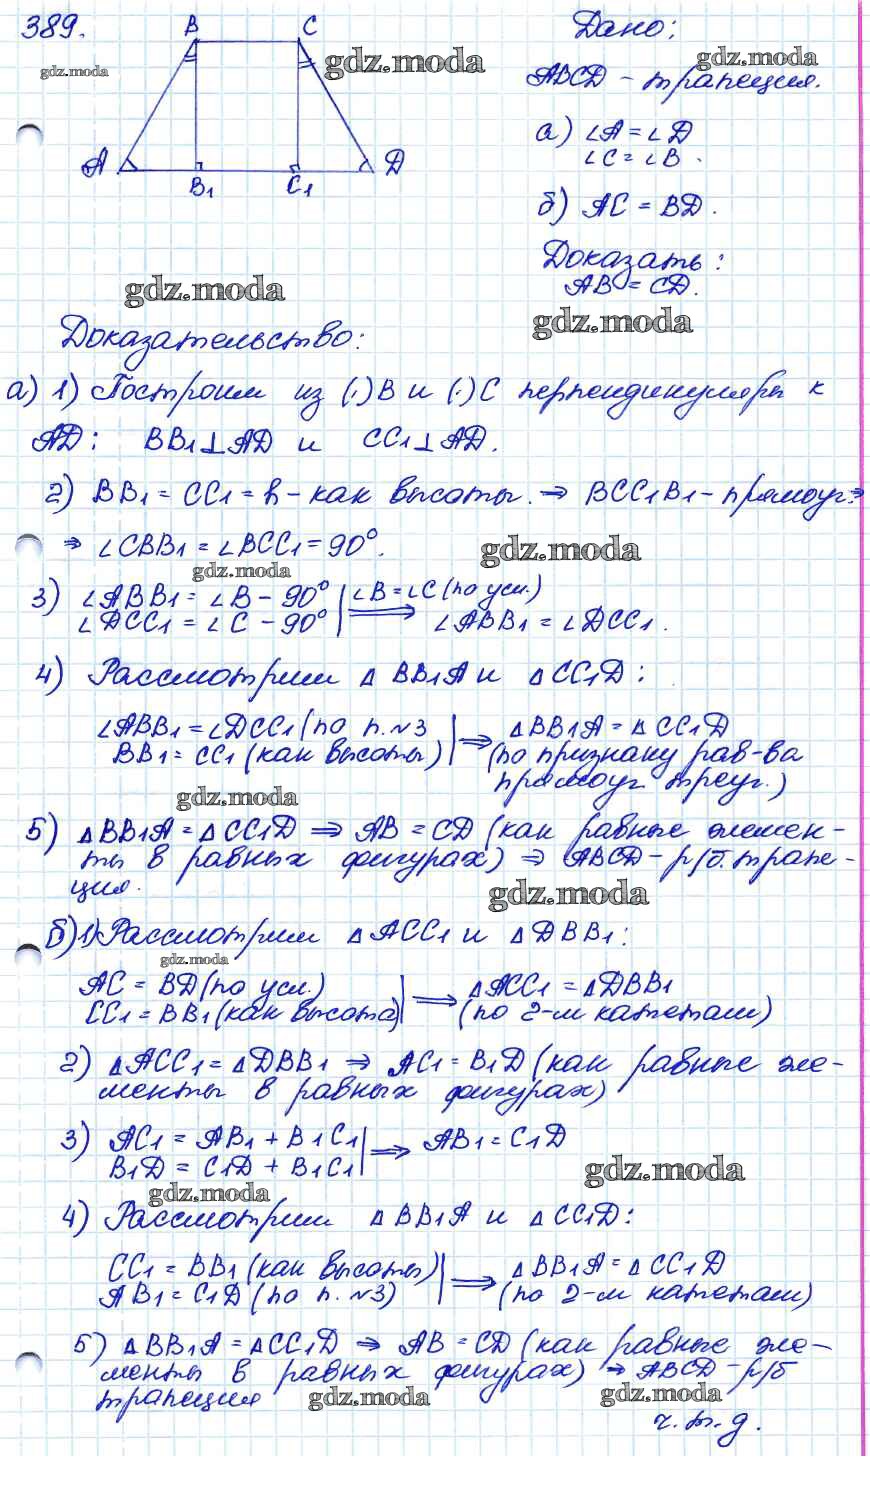 389.
B C
A B1 C1 D
Дано:
ABCD – трапеция.
а) ∠A = ∠D
∠C = ∠B.
б) AC = BD.
Доказать:
AB = CD.
gdz.moda
gdz.moda
gdz.moda
gdz.moda
gdz.moda
Доказательство:
а) 1) Построим из (·)B и (·)C перпендикуляры к
AD: BB1⊥AD и CC1⊥AD.
2) BB1 = CC1 = h – как высоты. ⇒ BCC1B1 – прямоуг. ⇒
⇒ ∠CBB1 = ∠BCC1 = 90°.
gdz.moda
gdz.moda
3) ∠ABB1 = ∠B – 90° | ∠B = ∠C (по усл.)
∠DCC1 = ∠C – 90° | ⇒ ∠ABB1 = ∠DCC1.
4) Рассмотрим △BB1A и △CC1D:
∠ABB1 = ∠DCC1 (по п.№3 | ⇒ △BB1A = △CC1D
BB1 = CC1 (как высоты) | (по признаку рав-ва
прямоуг. треуг.)
gdz.moda
5) △BB1A = △CC1D ⇒ AB = CD (как равные элемен-
ты в равных фигурах) ⇒ ABCD – р/б. трапе-
ция.
gdz.moda
б) 1) Рассмотрим △ACC1 и △DBB1:
gdz.moda
AC = BD (по усл.) | ⇒ △ACC1 = △DBB1
CC1 = BB1 (как высота) | (по 2-м катетам)
2) △ACC1 = △DBB1 ⇒ AC1 = B1D (как равные эле-
менты в равных фигурах)
3) AC1 = AB1 + B1C1 | ⇒ AB1 = C1D
B1D = C1D + B1C1 |
gdz.moda
gdz.moda
4) Рассмотрим △BB1A и △CC1D:
CC1 = BB1 (как высоты) | ⇒ △BB1A = △CC1D
AB1 = C1D (по п. №3) | (по 2-м катетам)
5) △BB1A = △CC1D ⇒ AB = CD (как равные эле-
менты в равных фигурах) ⇒ ABCD – р/б
трапеция
gdz.moda
gdz.moda
ч.т.д.